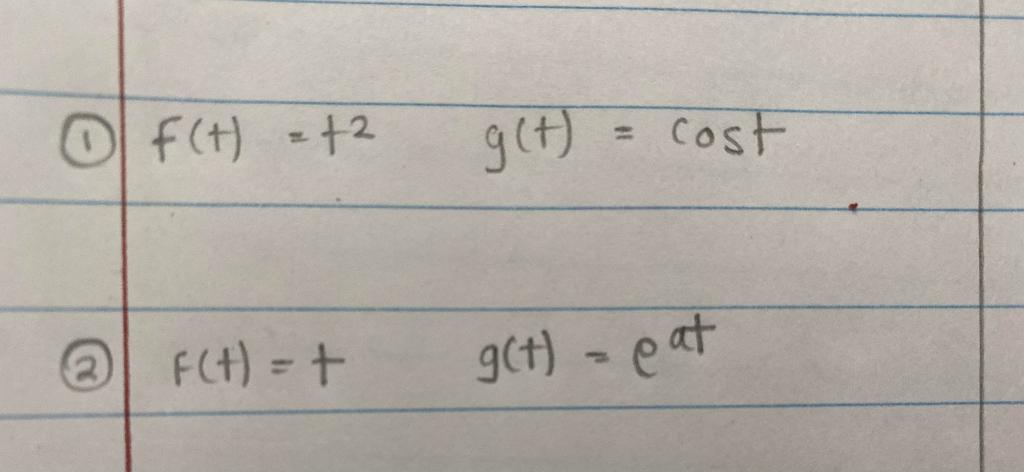 ① f(t) = t2 g(t) = cost
② F(t) = t g(t) = e^at